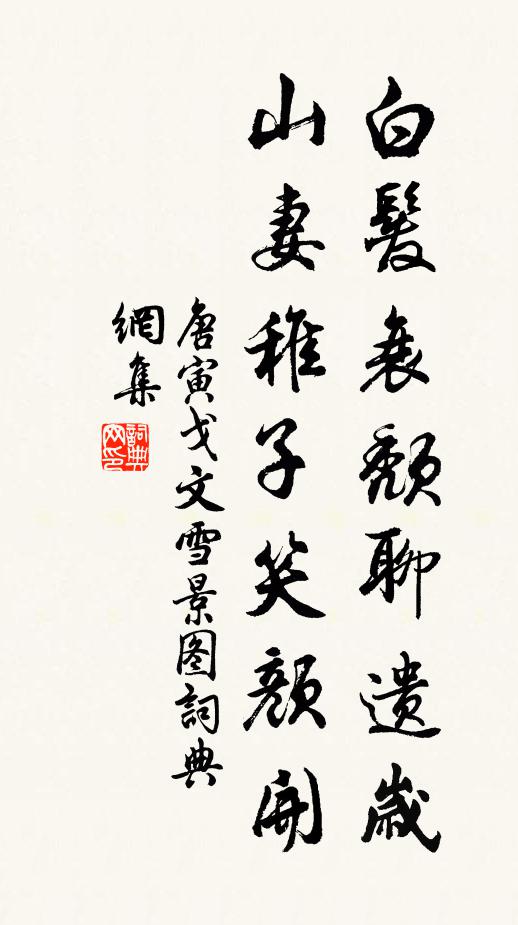 白髮衰頹聊遺歲
山妻稚子笑顏開
唐寅戈文雪景图詞典
網集
詞典
网印